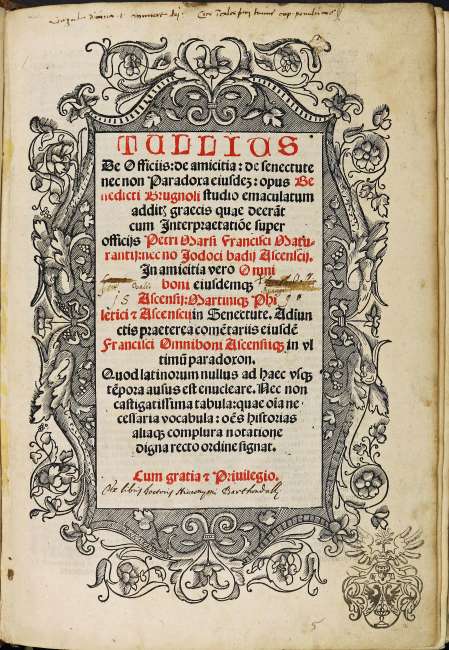 TULLIUS
De Officiis: de amicitia: de senectute
nec non Paradoxa eiusdeʒ: opus Be
nedicti Brugnoli studio emaculatum
additꝭ graecis quae deerāt
cum Interpraetatiōe super
officijs Petri Marsi Francisci Matu
rantij: nec nō Jodoci badij Ascensij.
In amicitia vero Omni
boni eiusdemqꝫ
Ascensij: Martiniqꝫ Phi
letici ⁊ Ascensii in Senectute. Adiun
ctis praeterea comētariis eiusdē
Francisci Omniboni Ascensiiqꝫ in vl
timū paradoxon.
Quod latinorum nullus ad haec vsqꝫ
tēpora ausus est enucleare. Nec non
castigatissima tabula: quae oīa ne
cessaria vocabula: oēs historias
aliaqꝫ complura notatione
digna recto ordine signat.
Cum gratia ⁊ Priuilegio.
Ex libris Doctoris Hieronymi
5